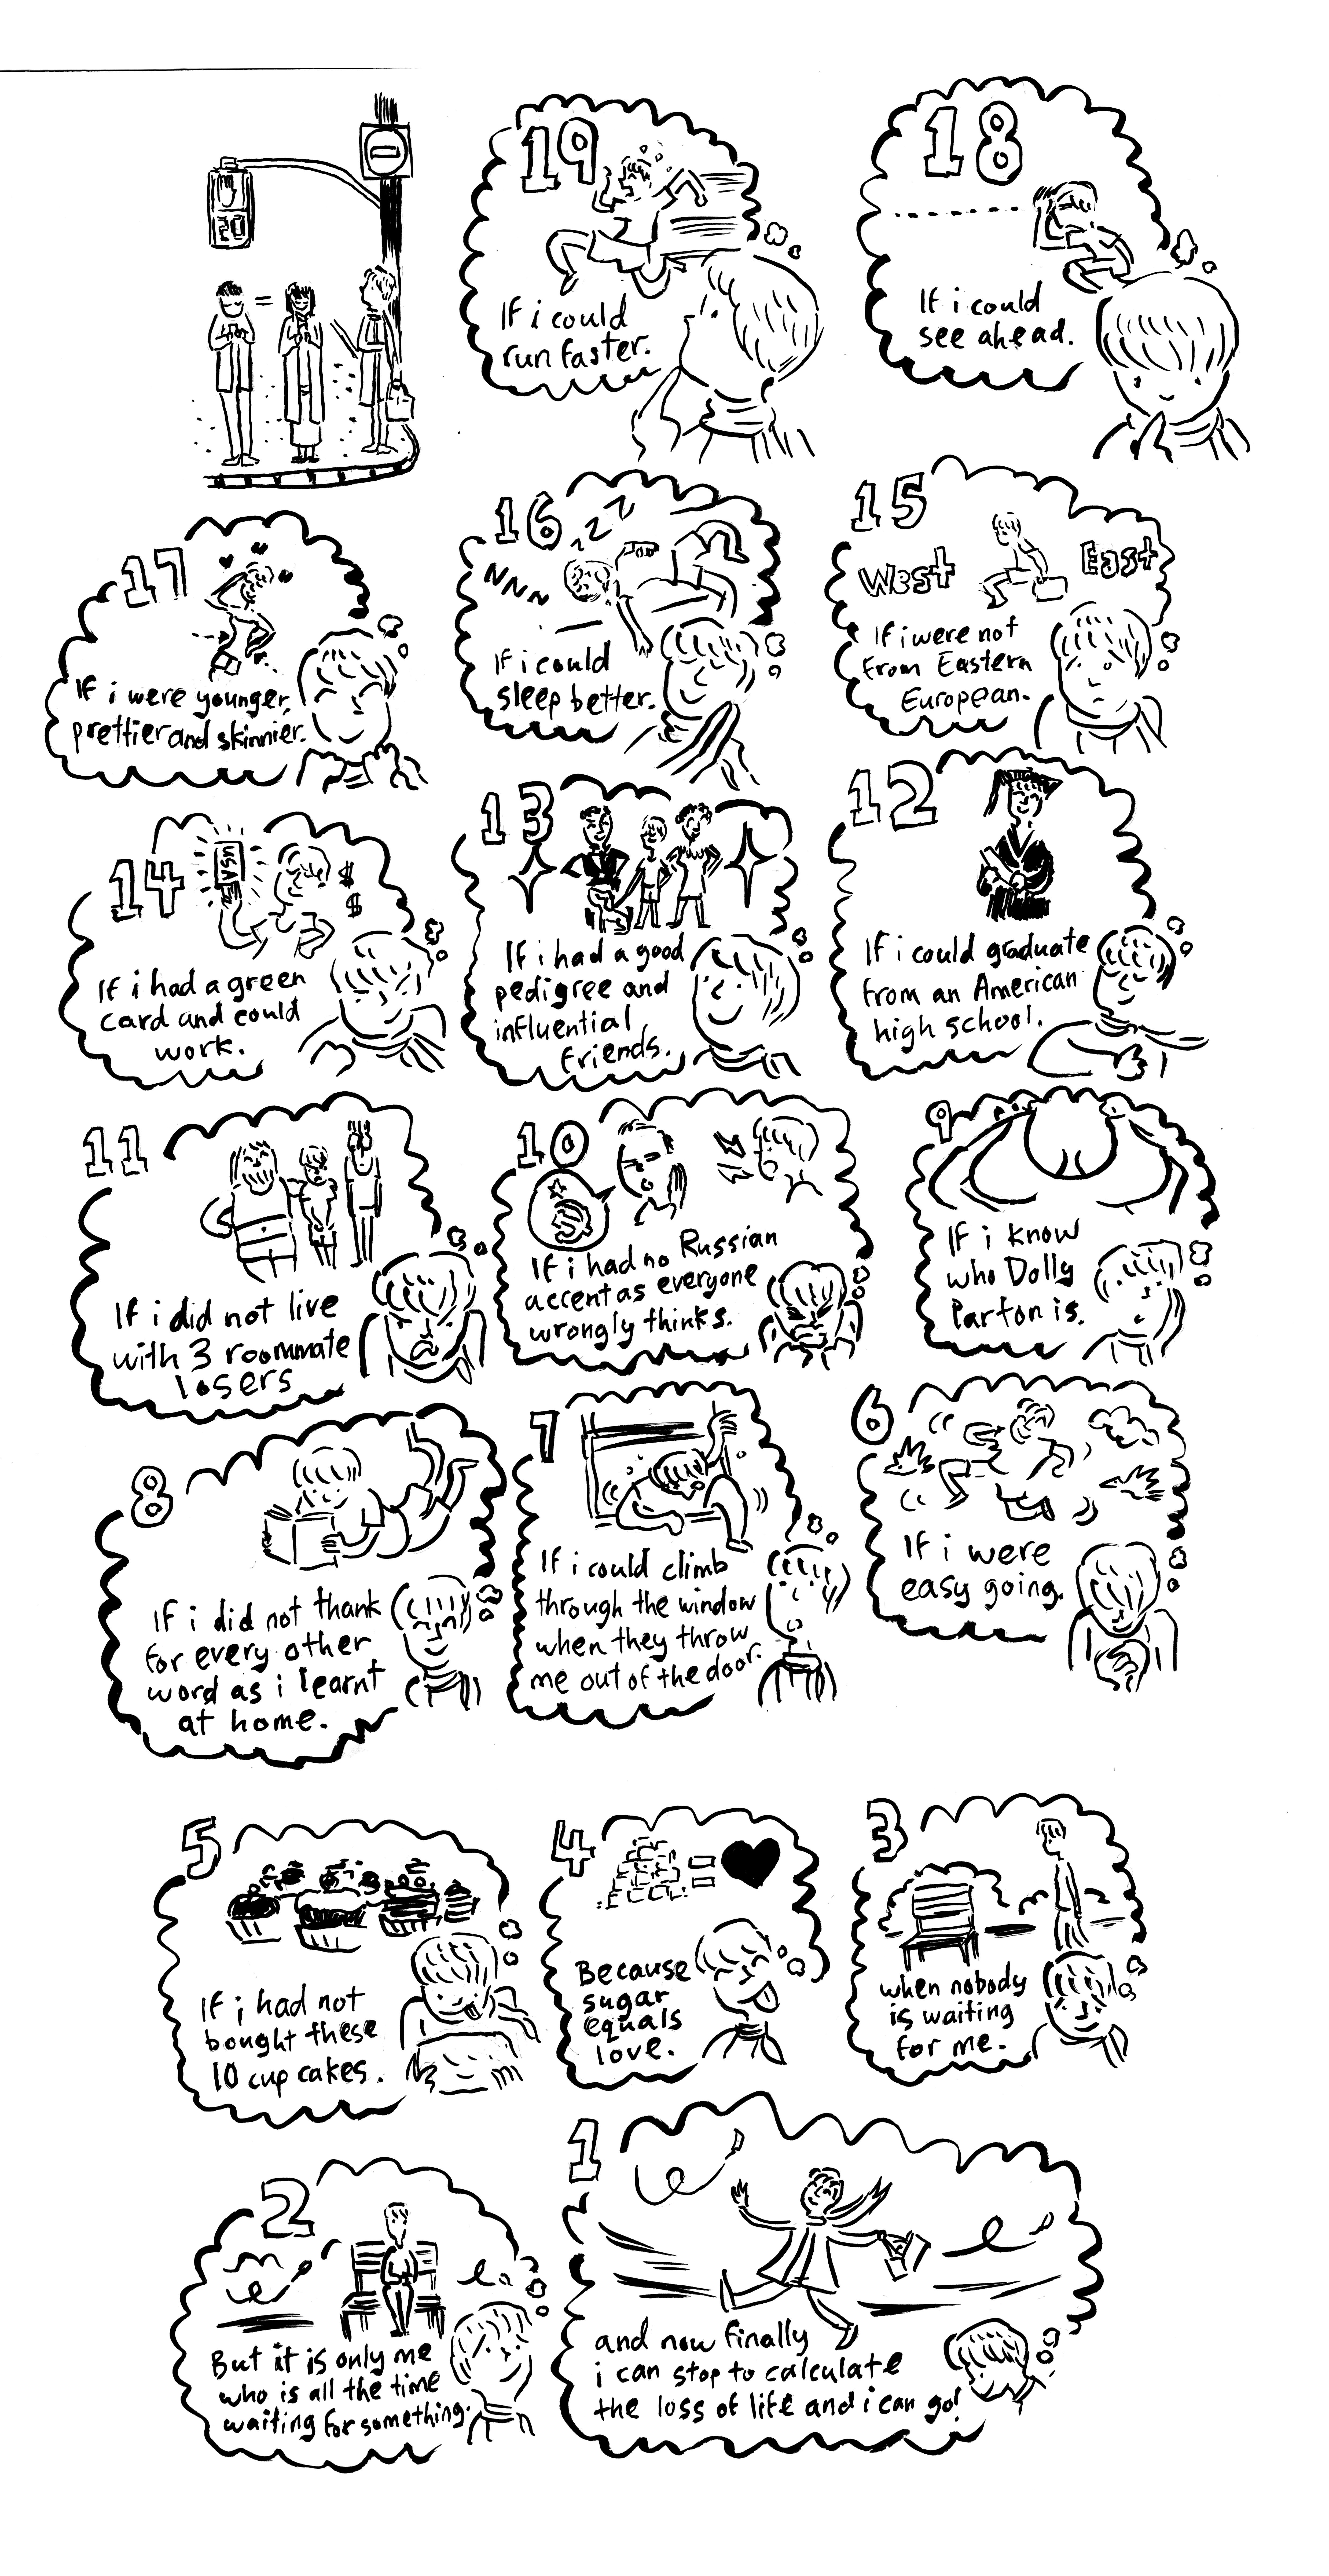 20
19
If i could
run faster.
18
If i could
see ahead.
17
If i were younger,
prettier and skinnier.
16
zzz
NNNN
If i could
sleep better.
15
West
East
If i were not
from Eastern
European.
14
USA
$
$
If i had a green
card and could
work.
13
If i had a good
pedigree and
influential
friends.
12
If i could graduate
from an American
high school.
11
If i did not live
with 3 roommate
losers
10
If i had no Russian
accent as everyone
wrongly thinks.
9
If i know
who Dolly
Parton is.
8
If i did not thank
for every other
word as i learnt
at home.
7
If i could climb
through the window
when they throw
me out of the door.
6
If i were
easy going.
5
If i had not
bought these
10 cup cakes.
4
=
Because
sugar
equals
love.
3
when nobody
is waiting
for me.
2
But it is only me
who is all the time
waiting for something.
1
and now finally
i can stop to calculate
the loss of life and i can go!